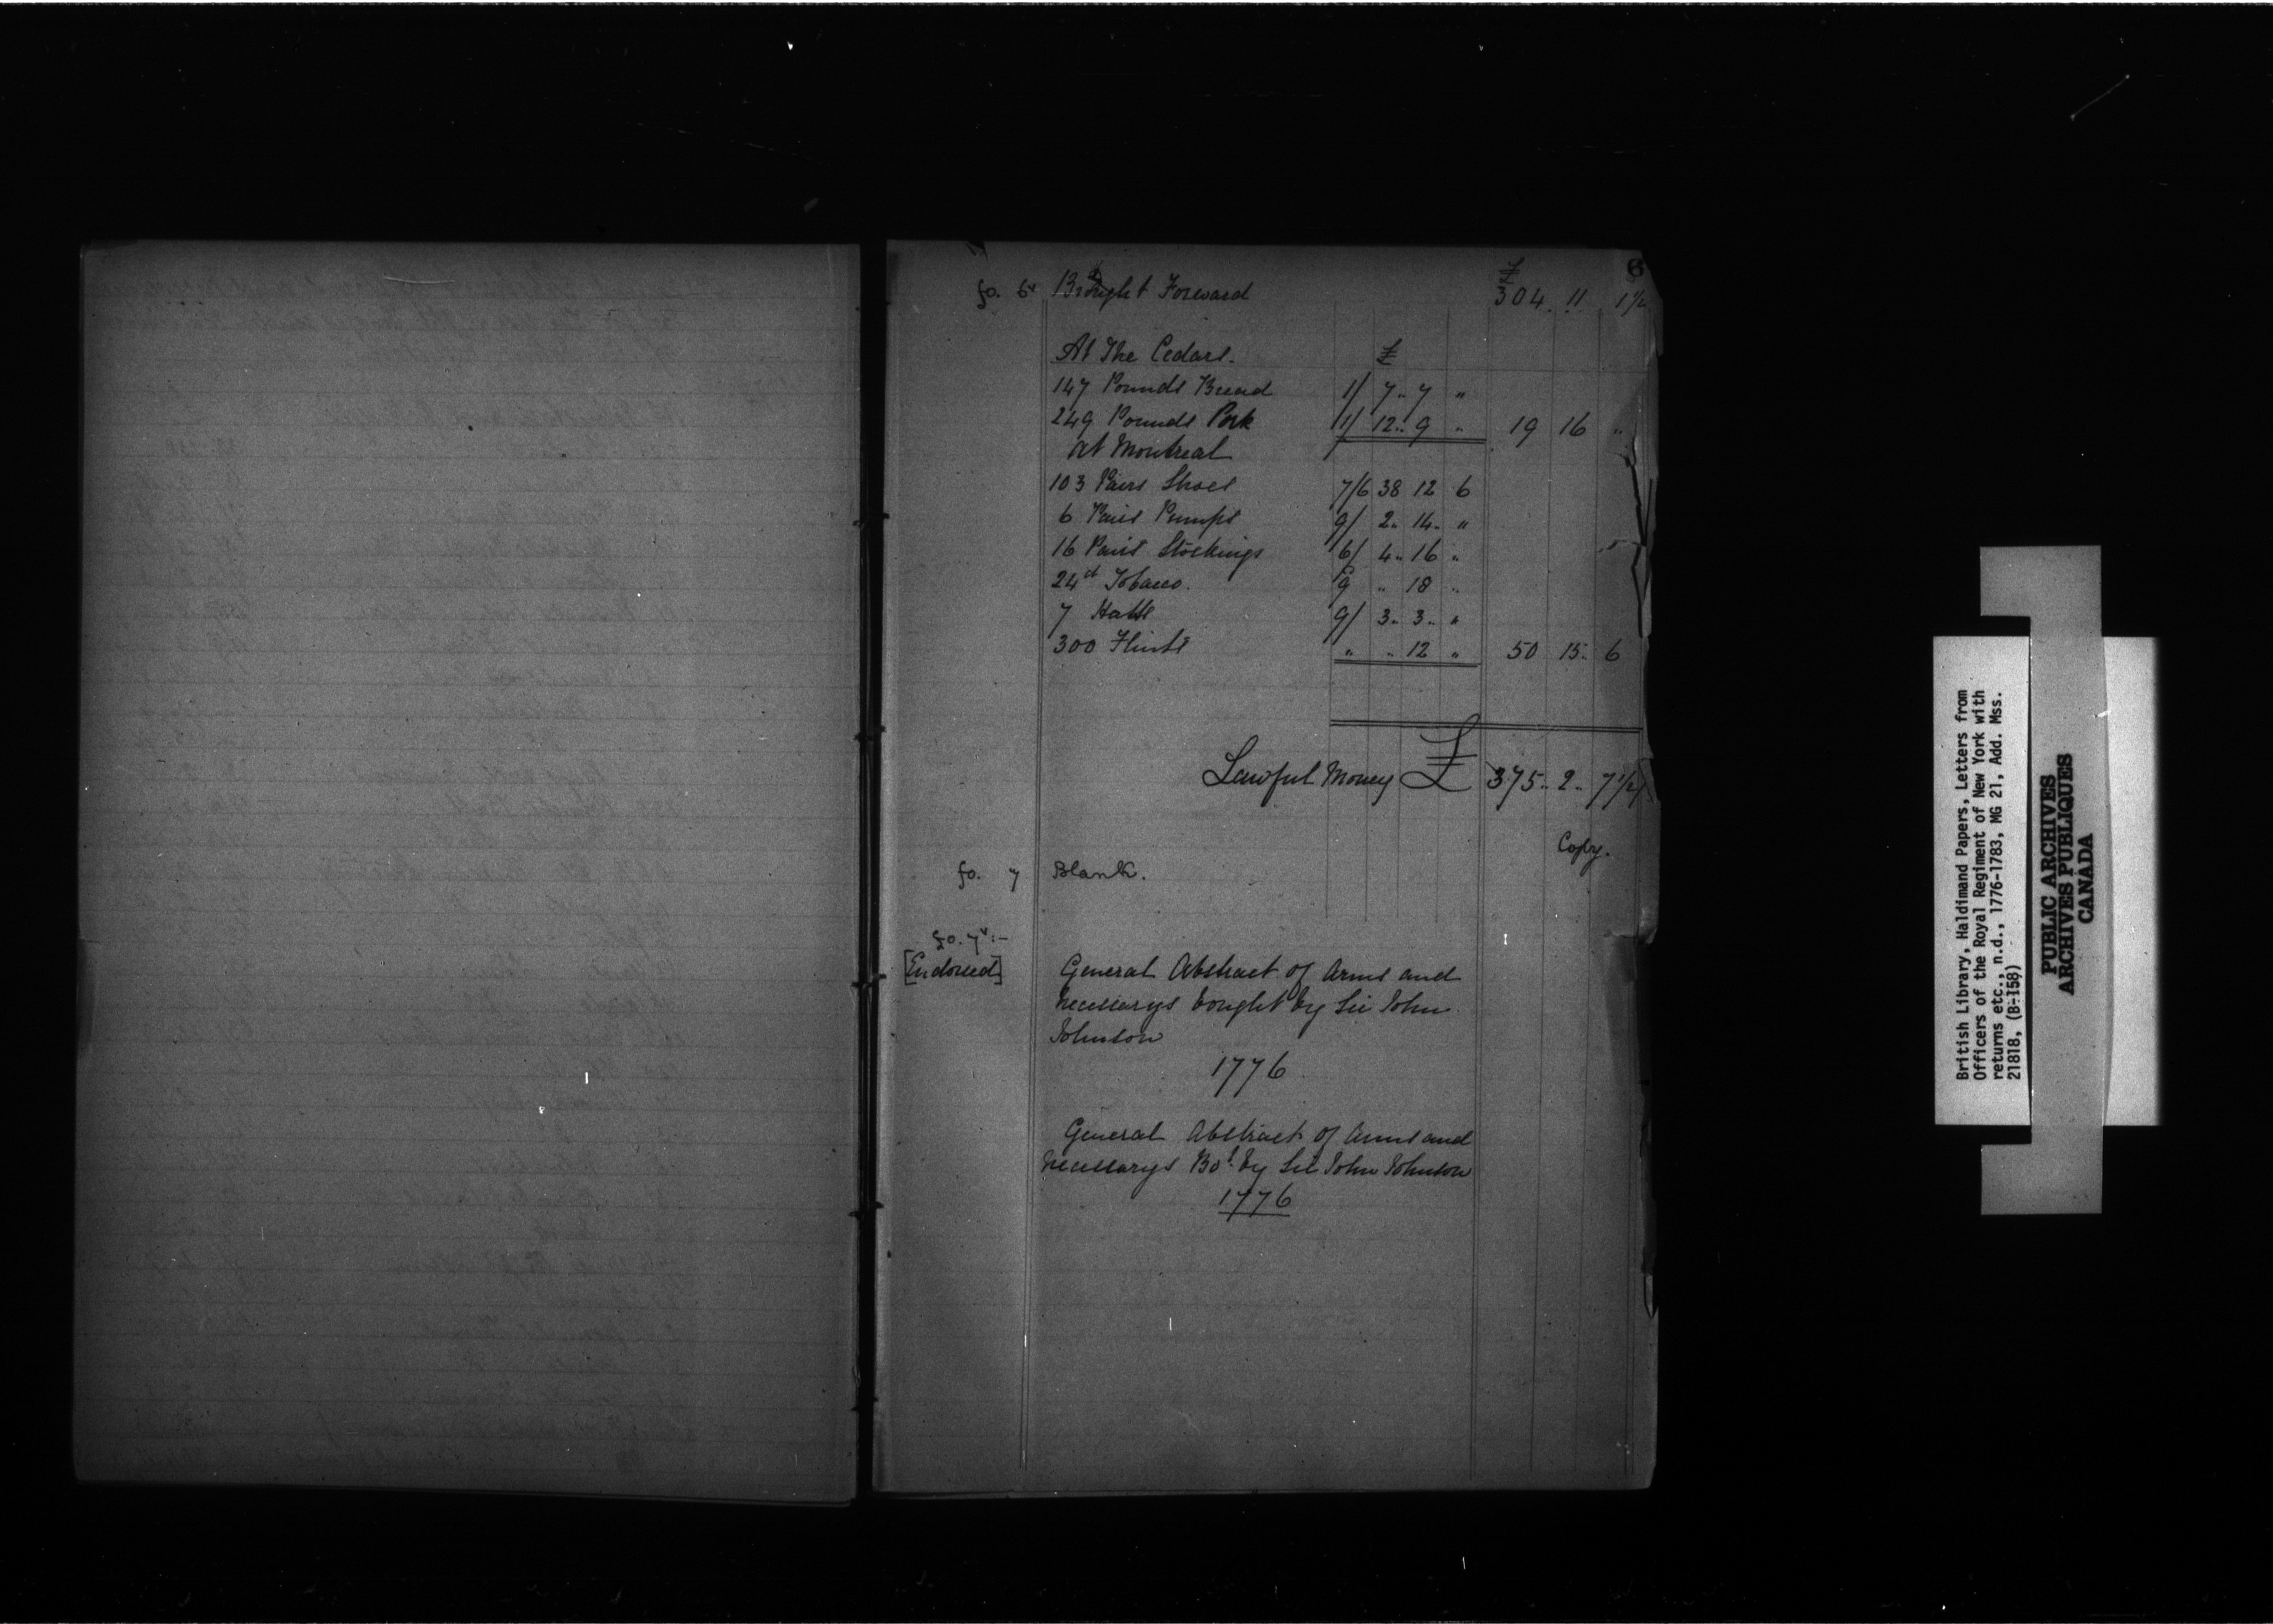 6
£
fo. 6v Brought Forward 304. 11 1 1/2
At The Cedars. £
147 Pounds Bread 1/ 7.. 7 "
249 Pounds Pork 1/ 12.. 9 " 19 16 "
At Montreal
103 Pairs Shoes 7/6 38 12 6
6 Pairs Pumps 9/ 2.. 14.. "
16 Pairs Stockings 6/ 4.. 16 "
24 lb Tobacco. 9 " 18 "
7 Hatts 9/ 3.. 3.. "
300 Flints " " 12 " 50 15.. 6
Lawful Money £ 375.. 2.. 7 1/2
Copy.
fo. 7 Blank.
fo. 7v:-
[Endorsed] General Abstract of Arms and
necessarys bought by Sir John
Johnson
1776
General Abstract of Arms and
necessarys Bot. by Sir John Johnson
1776
British Library, Haldimand Papers, Letters from
Officers of the Royal Regiment of New York with
returns etc., n.d., 1776-1783, MG 21, Add. Mss.
21818, (B-158)
PUBLIC ARCHIVES
ARCHIVES PUBLIQUES
CANADA